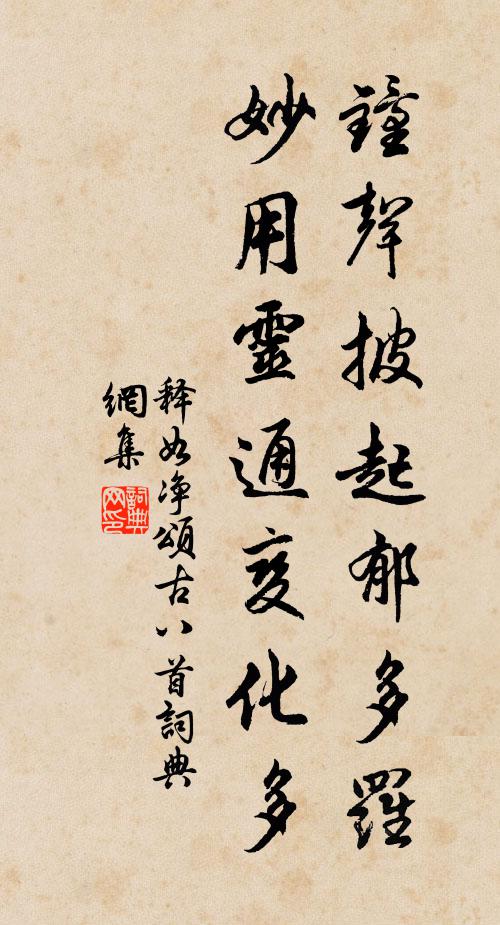 鐘聲披起郁多羅
妙用靈通變化多
釋如净頌古八首詞典
網集
詞典网印